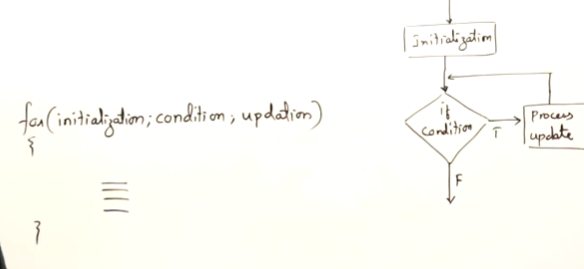 for(initialization; condition; updation)
{
}
initialization
if
condition
T
Process
update
F